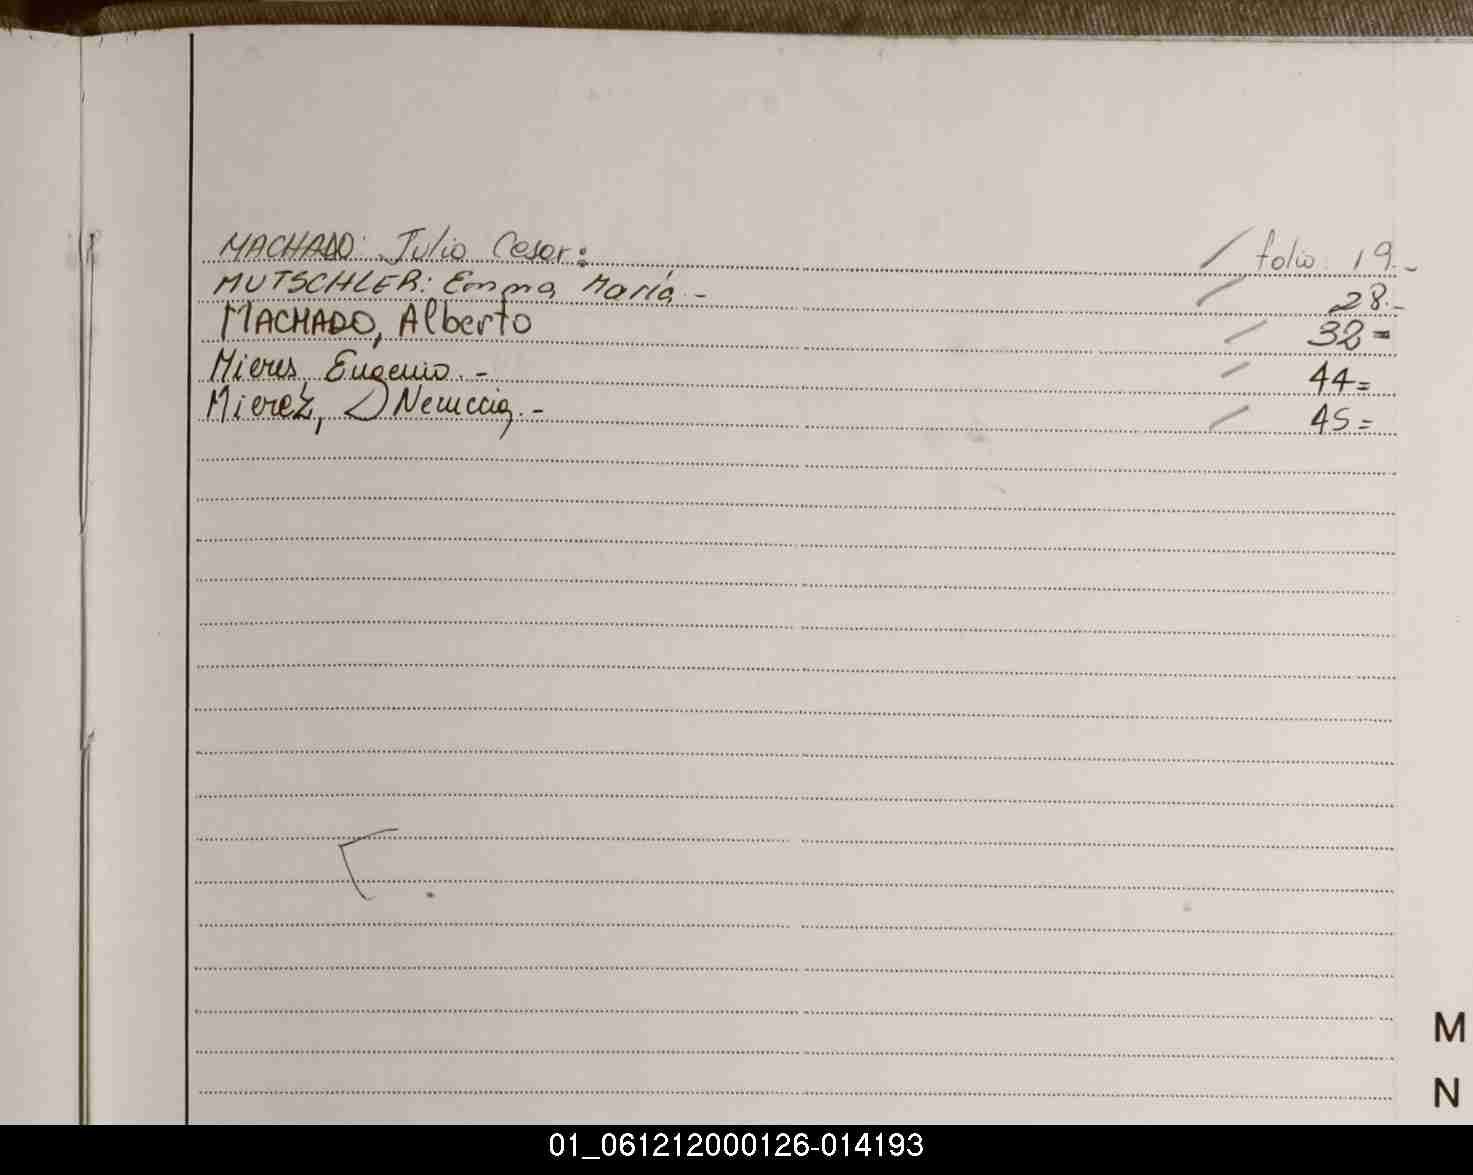 MACHADO: Julio Cesar: / folio: 19.-
MUTSCHLER: Emma María.- / 28.-
MACHADO, Alberto / 32=
Mieres, Eugenio.- / 44=
Mierez, / 45=
M
N
01_061212000126-014193